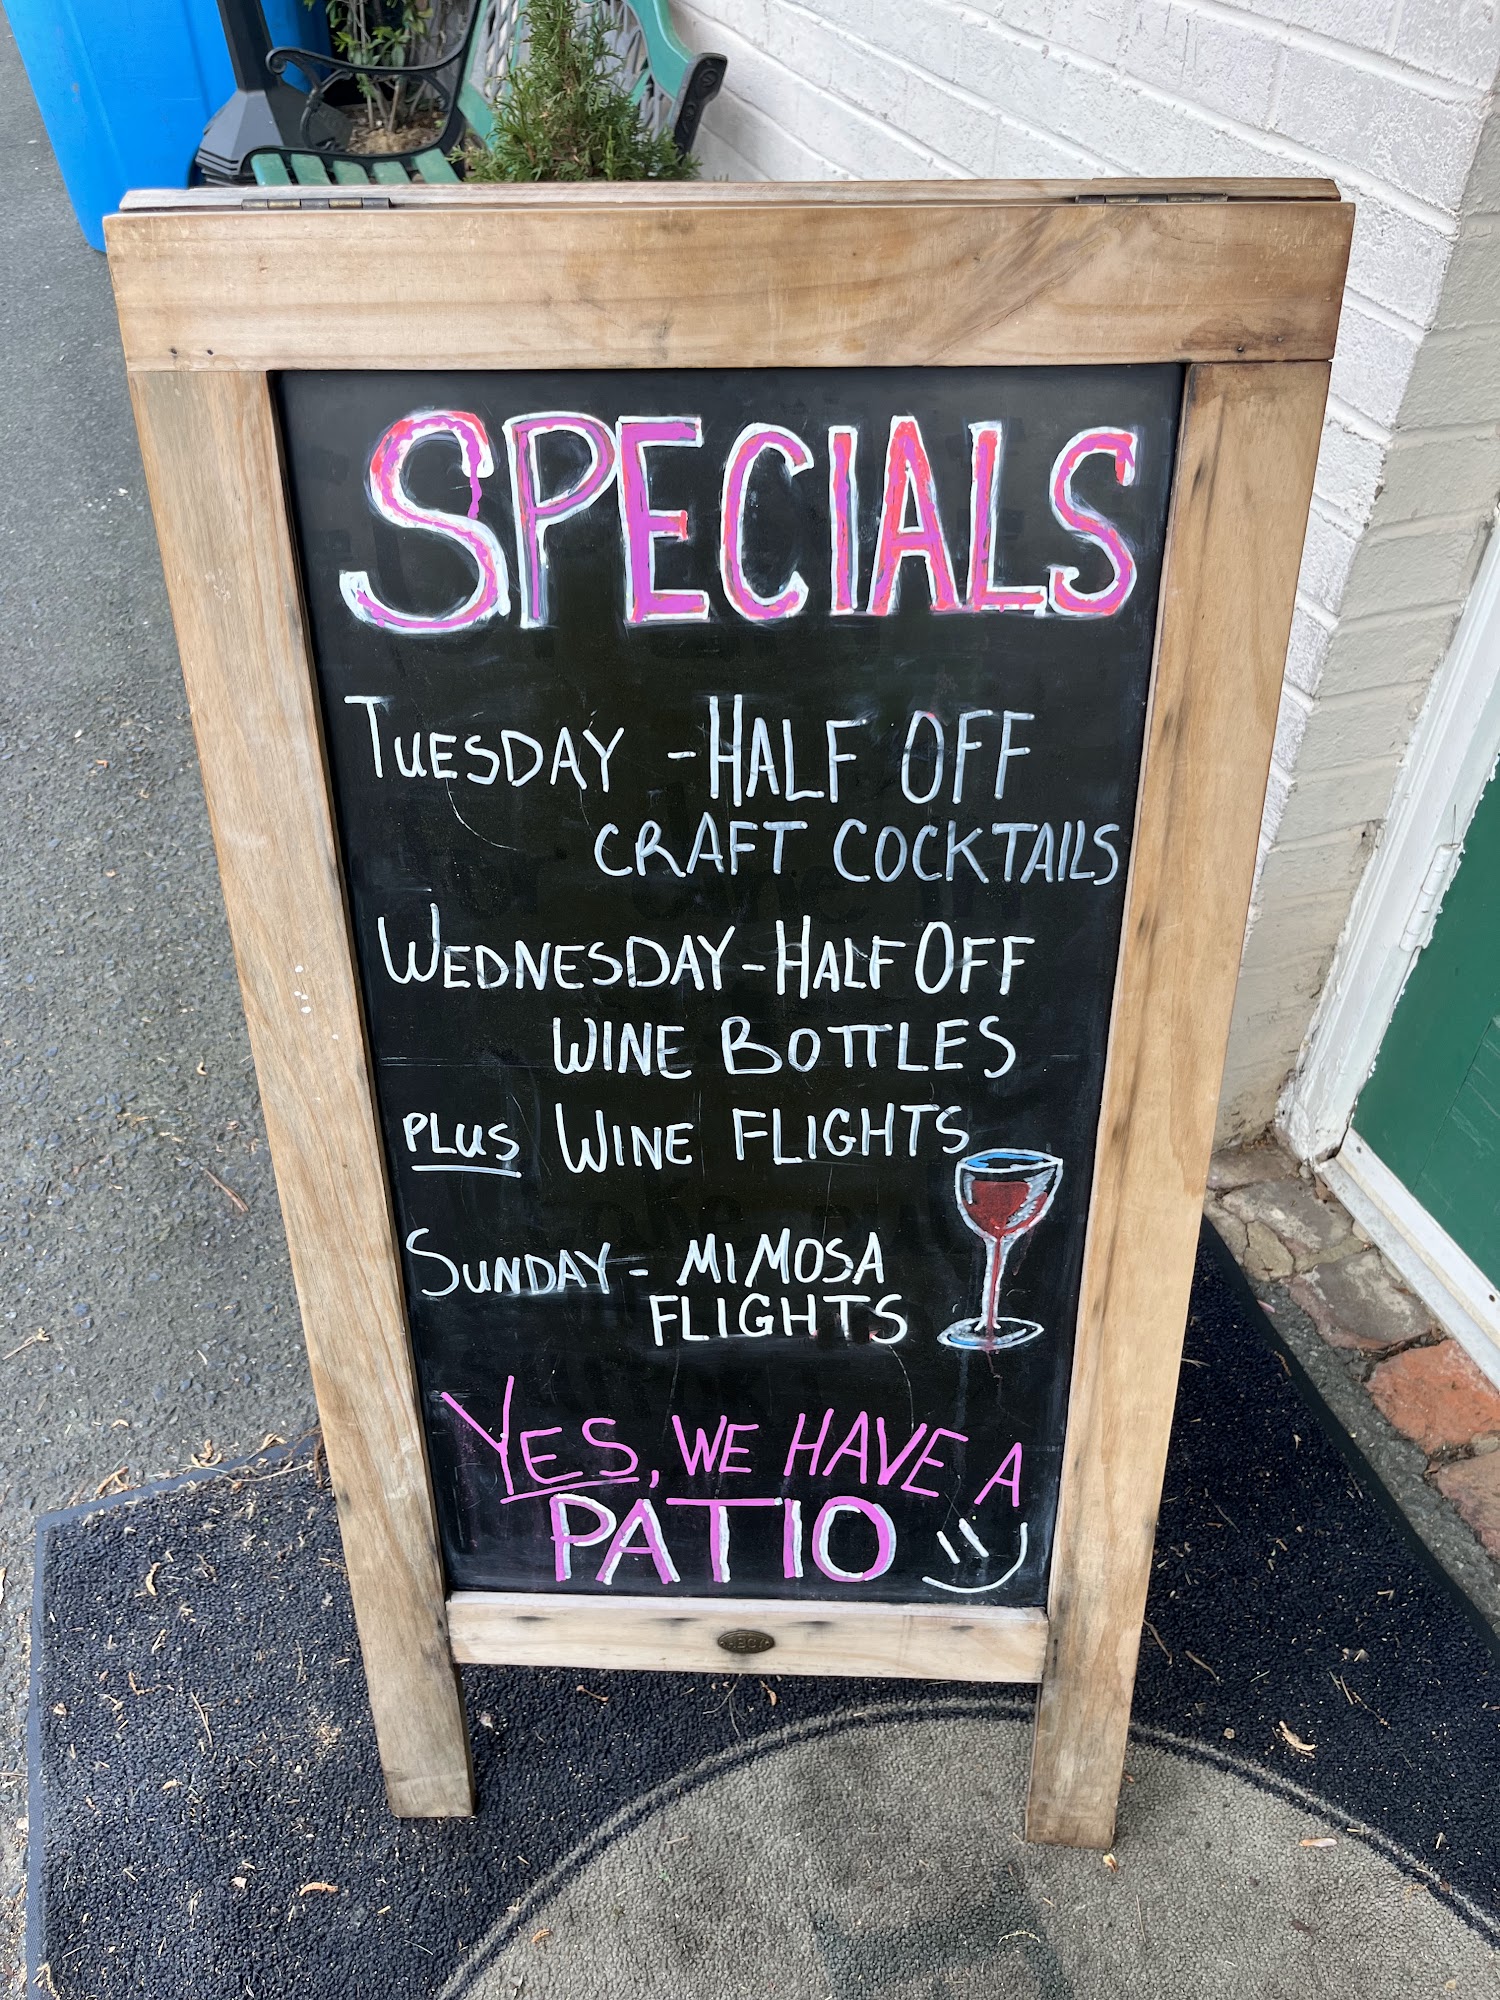 SPECIALS
TUESDAY - HALF OFF
CRAFT COCKTAILS
WEDNESDAY - HALF OFF
WINE BOTTLES
PLUS WINE FLIGHTS
SUNDAY - MIMOSA
FLIGHTS
YES, WE HAVE A
PATIO